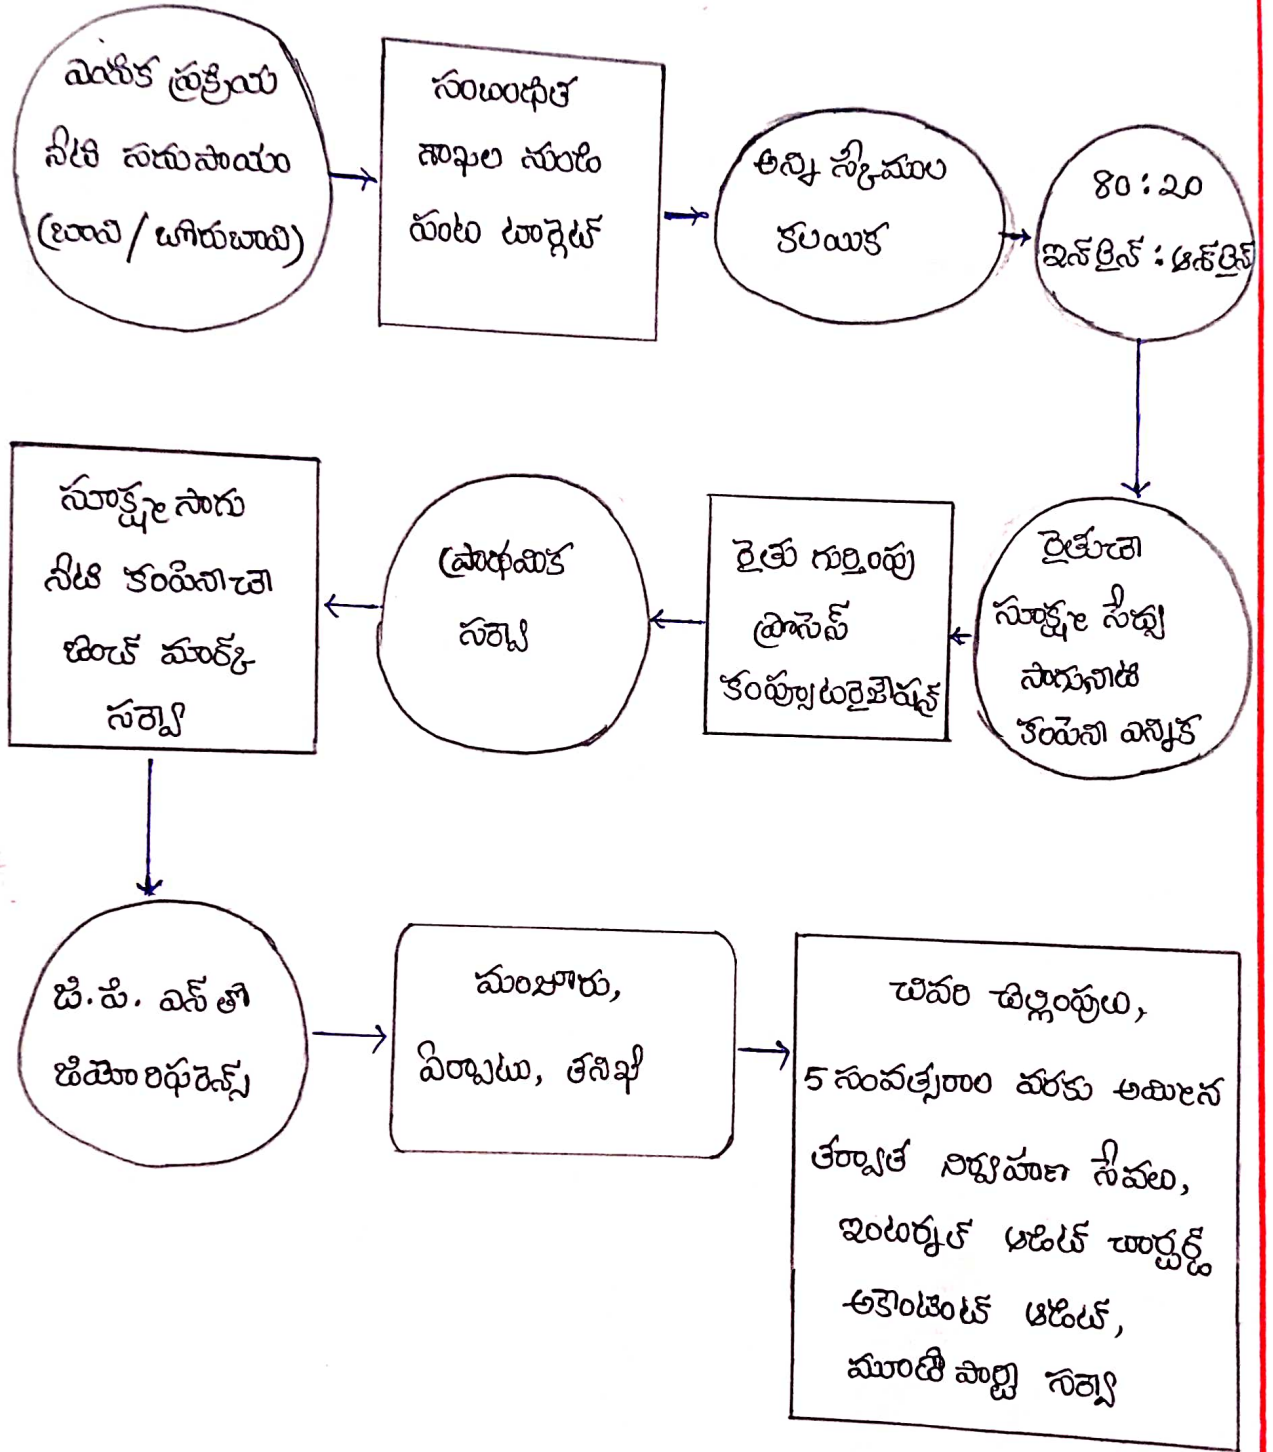 ఎంపిక ప్రక్రియ
నీటి సదుపాయం
(బావి / బోరుబావి)
సంబంధిత
శాఖల నుండి
పంట టార్గెట్
అన్ని స్కీముల
కలయిక
80 : 20
ఇన్‌లైన్ : ఆన్‌లైన్
రైతుచే
సూక్ష్మ సేద్య
సాగునీటి
కంపెనీ ఎన్నిక
రైతు గుర్తింపు
ప్రాసెస్
కంప్యూటరైజేషన్
ప్రాథమిక
సర్వే
సూక్ష్మ సాగు
నీటి కంపెనీచే
బెంచ్ మార్క్
సర్వే
జి. పి. ఎస్ తో
జియో రిఫరెన్స్
మంజూరు,
ఏర్పాటు, తనిఖీ
చివరి చెల్లింపులు,
5 సంవత్సరాల వరకు అయిన
తర్వాత నిర్వహణ సేవలు,
ఇంటర్నల్ ఆడిట్ చార్టర్డ్
అకౌంటెంట్ ఆడిట్,
మూడో పార్టీ సర్వే